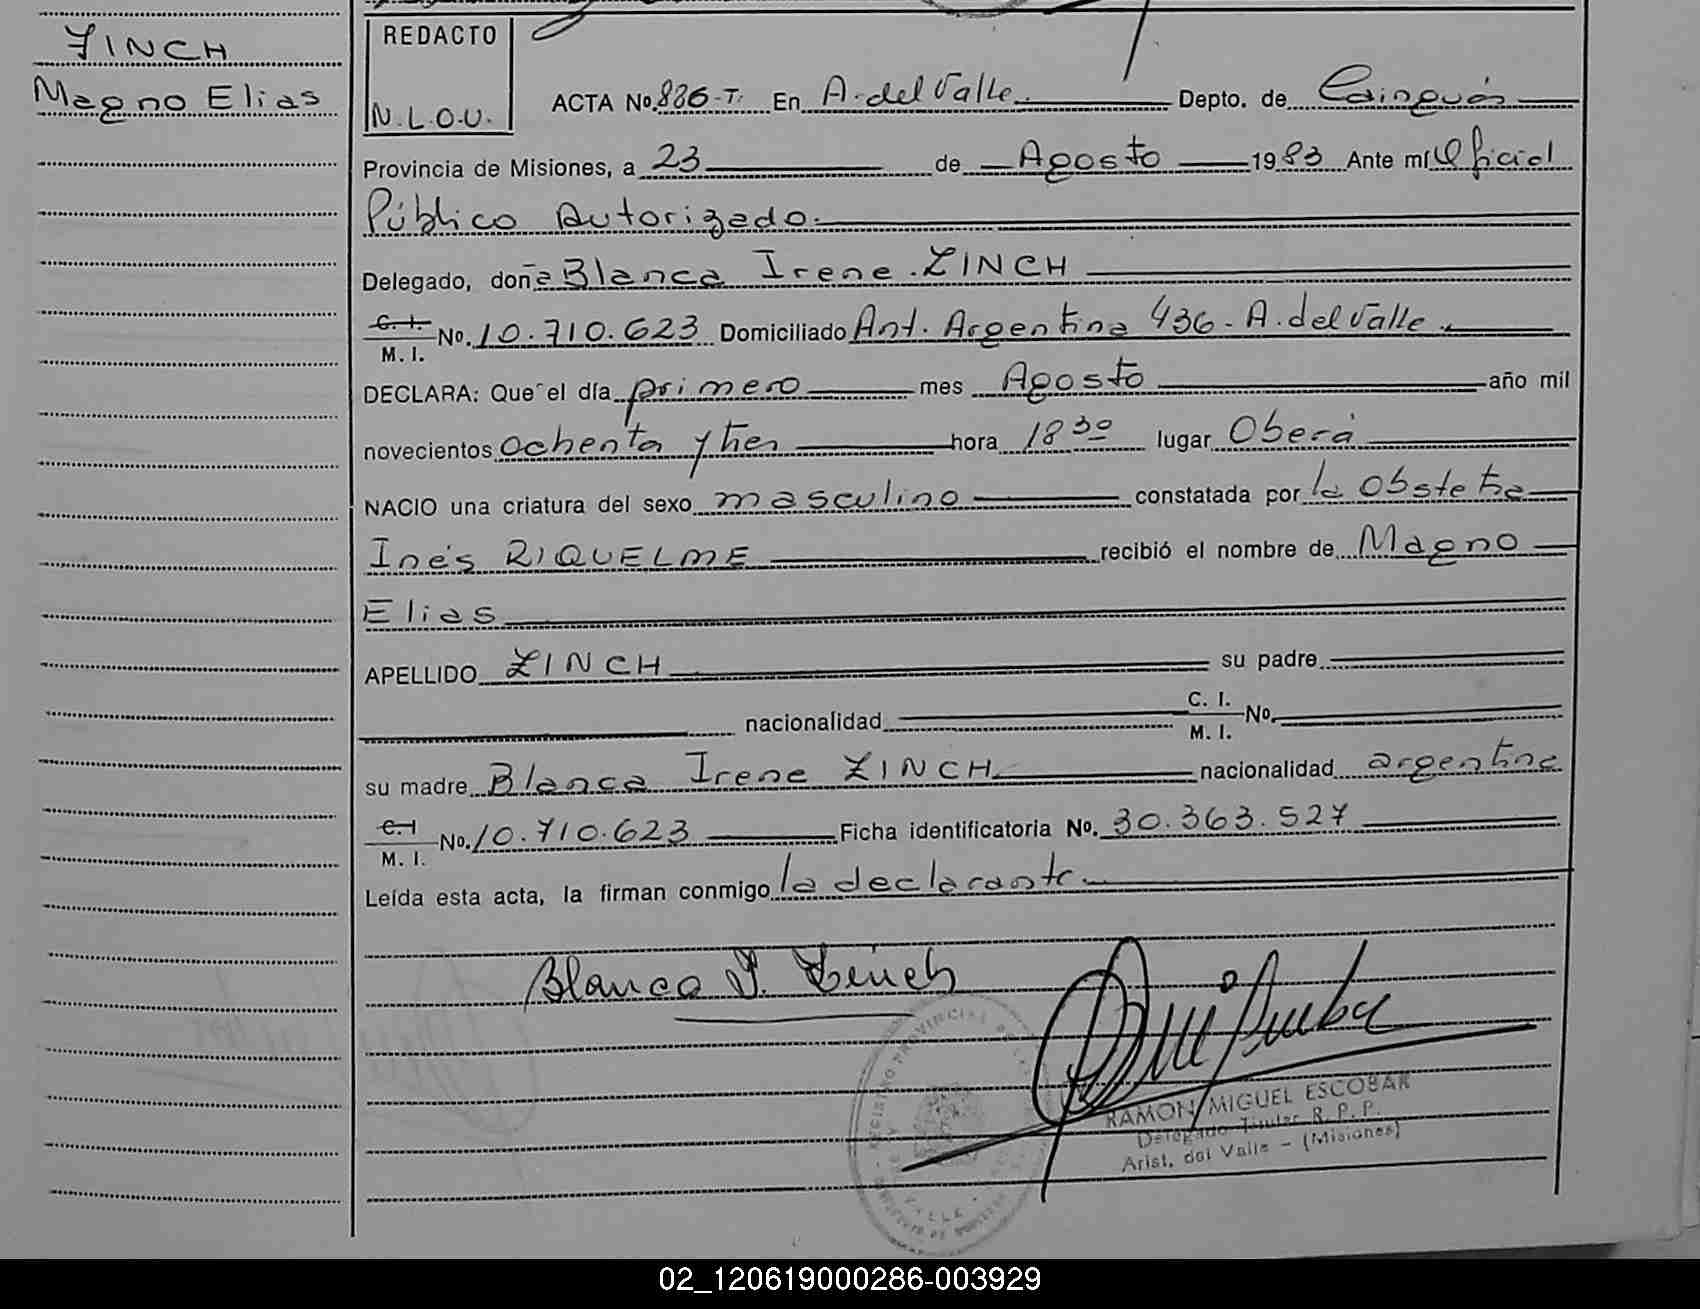 ZINCH
Magno Elias
REDACTO
N.L.O.U.
ACTA No. 836-T. En A. del Valle. Depto. de Cainguás
Provincia de Misiones, a 23 de Agosto 1983 Ante mí Oficial
Público Autorizado.
Delegado, doña Blanca Irene ZINCH
C. I.
M. I. No. 10.710.623 Domiciliado Ant. Argentina 436 - A. del Valle.
DECLARA: Que el día primero mes Agosto año mil
novecientos ochenta y tres hora 18 30 lugar Oberá
NACIO una criatura del sexo masculino constatada por la Obstetra
Inés RIQUELME recibió el nombre de Magno
Elias
APELLIDO ZINCH su padre
nacionalidad C. I.
M. I. No.
su madre Blanca Irene ZINCH nacionalidad argentina
C. I
M. I. No. 10.710.623 Ficha identificatoria No. 30.363.527
Leída esta acta, la firman conmigo la declarante.
Blanca I. Zinch
REGISTRO PROVINCIAL
VALLE
RAMON MIGUEL ESCOBAR
Delegado Titular R. P. P.
Arist. del Valle - (Misiones)
02_120619000286-003929